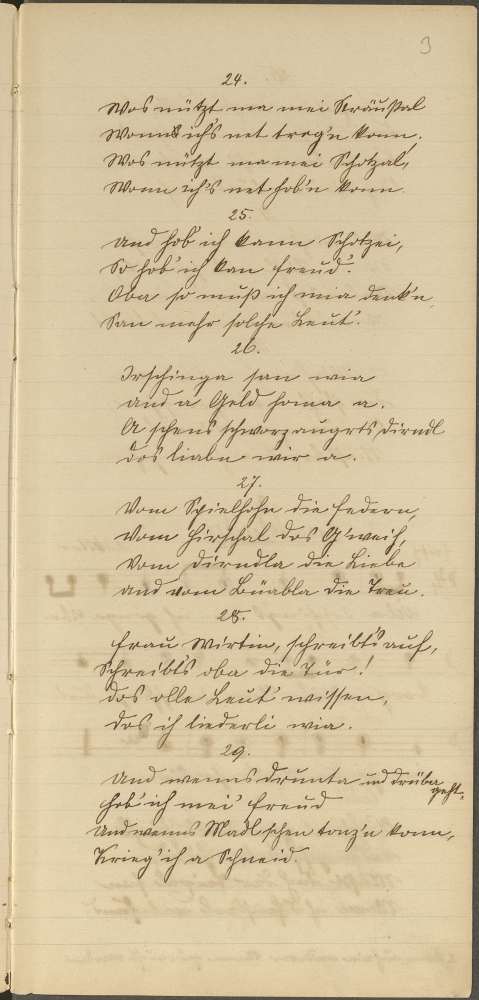 3
24.
Wos nützt ma mei Sträußal
Wonn ich's net trog'n konn.
Wos nützt ma mei Schotzal,
Wonn ich's net hob'n konn.
25.
And hob' ich kann Schotzei,
So hob' ich kan Freud'.
Oba so muß ich mia denk'n,
San mehr solche Leut'.
26.
Irschinga san wia
and a Geld homa a.
A schens schworzaugerts Dirndl
dos liabn wir a.
27.
Vom Spielhohn die Federn,
vom Hirschal dos G'weih,
Vom Dirndla die Liebe
and vom Büabla die Treu.
28.
Frau Wirtin, schreibt's auf,
Schreibt's oba die Tür!
Dos olle Leut' wissen,
Dos ich liederli wia.
29.
And wenns drunta und drüba geht,
Hob' ich mei' Freud
And wenns Madl schen tonz'n konn,
Krieg' ich a Schneid.